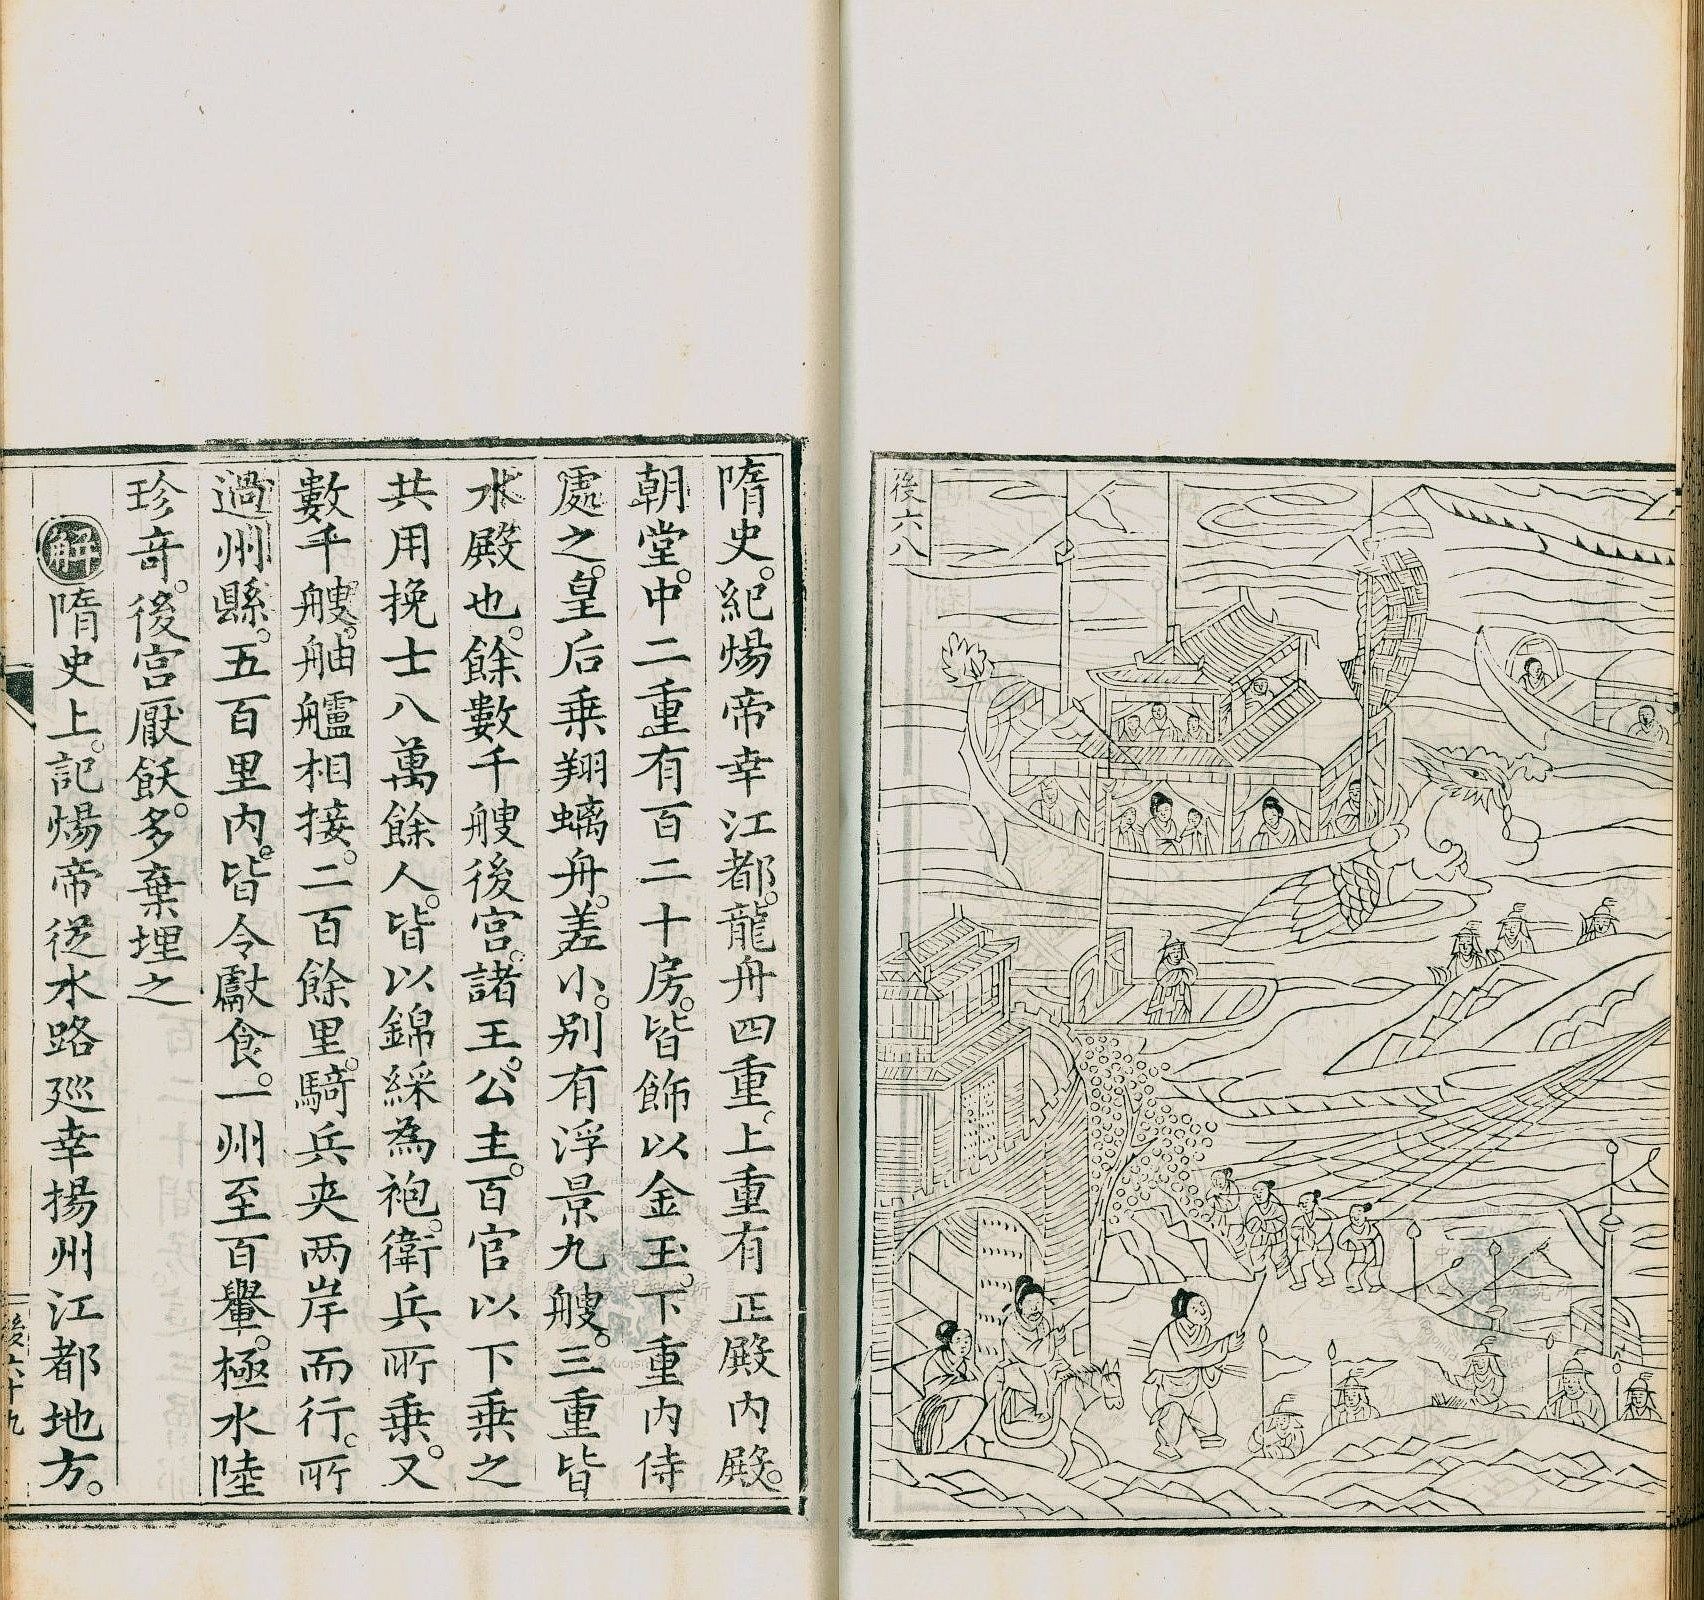 後六八
隋史。紀煬帝幸江都。龍舟四重。上重有正殿內殿。
朝堂。中二重有百二十房。皆飾以金玉。下重內侍
處之。皇后乘翔螭舟。差小。別有浮景九艘。三重皆
水殿也。餘數千艘後宮。諸王。公主。百官以下乘之
共用挽士八萬餘人。皆以錦綵為袍。衛兵所乘。又
數千艘。舳艫相接。二百餘里。騎兵夾两岸而行。所
過州縣。五百里內。皆令獻食。一州至百轝。極水陸
珍奇。後宮厭飫。多棄埋之
解 隋史上。記煬帝從水路廵幸揚州江都地方。
後六十九